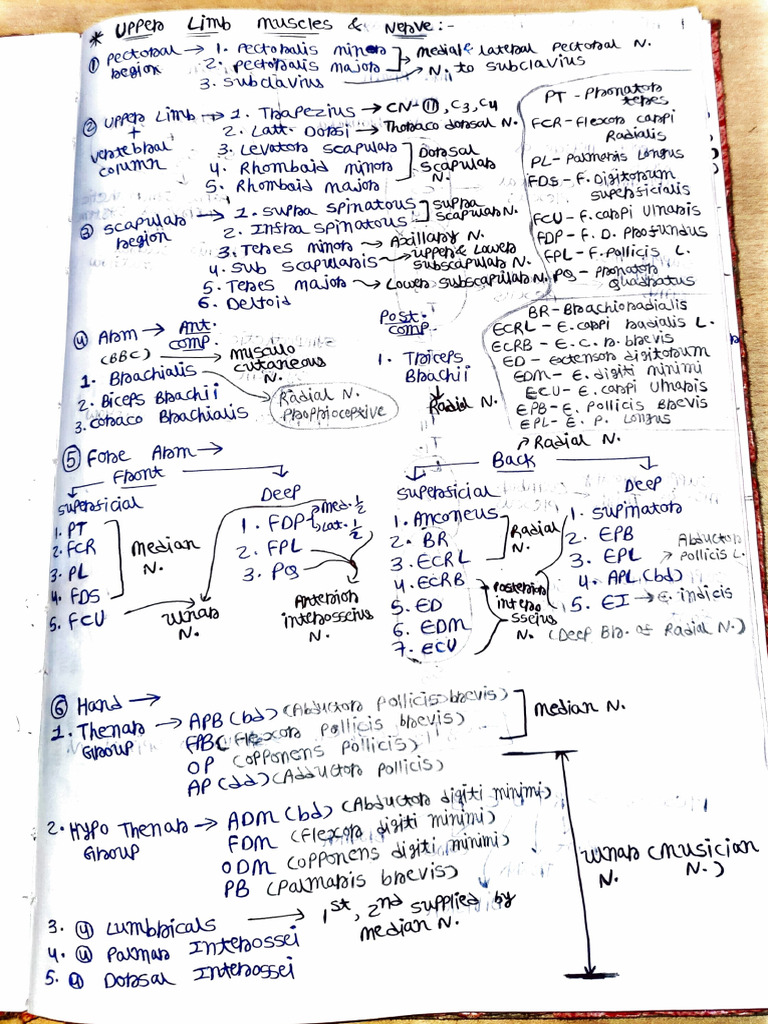 * Upper Limb muscles & Nerve:-
① Pectoral region → 1. Pectoralis minor
2. Pectoralis major
medial & lateral Pectoral N.
3. Subclavius → N. to subclavius
② Upper Limb + vertebral column → 1. Trapezius → CN-⑪, C3, C4
2. Latt. Dorsi → Thoraco dorsal N.
3. Levator scapular
4. Rhomboid minor
5. Rhomboid major
Dorsal scapular N.
③ Scapular region → 1. supra spinatous
2. Infra spinatous
supra scapular N.
3. Teres minor → Axillary N.
4. Sub scapularis → upper & Lower subscapular N.
5. Teres major → Lower subscapular N.
6. Deltoid
PT - Pronator teres
FCR - Flexor carpi Radialis
PL - Palmaris Longus
FDS - F. Digitorum superficialis
FCU - F. carpi Ulnaris
FDP - F. D. Profundus
FPL - F. Pollicis L.
PQ - Pronator Quadratus
BR - Brachioradialis
ECRL - E. carpi radialis L.
ECRB - E. C. R. brevis
ED - extensor digitorum
EDM - E. digiti minimi
ECU - E. carpi Ulnaris
EPB - E. Pollicis Brevis
EPL - E. P. Longus
④ Arm → Ant. comp.
(BBC) → musculo cutaneous N.
1. Brachialis
2. Biceps Brachii
3. Coraco Brachialis
Radial N. Proprioceptive
Post. comp.
1. Triceps Brachii
Radial N.
⑤ Fore Arm →
Front
superficial
1. PT
2. FCR
3. PL
4. FDS
Median N.
5. FCU → Ulnar N.
Deep
1. FDP Med. 1/2 Lat. 1/2
2. FPL
3. PQ
Anterior interosseius N.
Back
Radial N.
superficial
1. Anconeus
2. BR
3. ECRL
Radial N.
4. ECRB
5. ED
6. EDM
7. ECU
Posterior interosseius N.
(Deep Br. of Radial N.)
Deep
1. Supinator
2. EPB
3. EPL
4. APL (bd)
Abductor Pollicis L.
5. EI → E. indicis
⑥ Hand →
1. Thenar Group → APB (bd) (Abductor Pollicis brevis)
FPB (Flexor Pollicis brevis)
OP (opponens pollicis)
median N.
AP (dd) (Adductor Pollicis)
2. Hypo Thenar Group → ADM (bd) (Abductor digiti minimi)
FDM (Flexor digiti minimi)
ODM (opponens digiti minimi)
PB (Palmaris brevis)
Ulnar (Musician N. N.)
3. ④ Lumbricals → 1st, 2nd supplied by median N.
4. ④ Palmar Interossei
5. ④ Dorsal Interossei